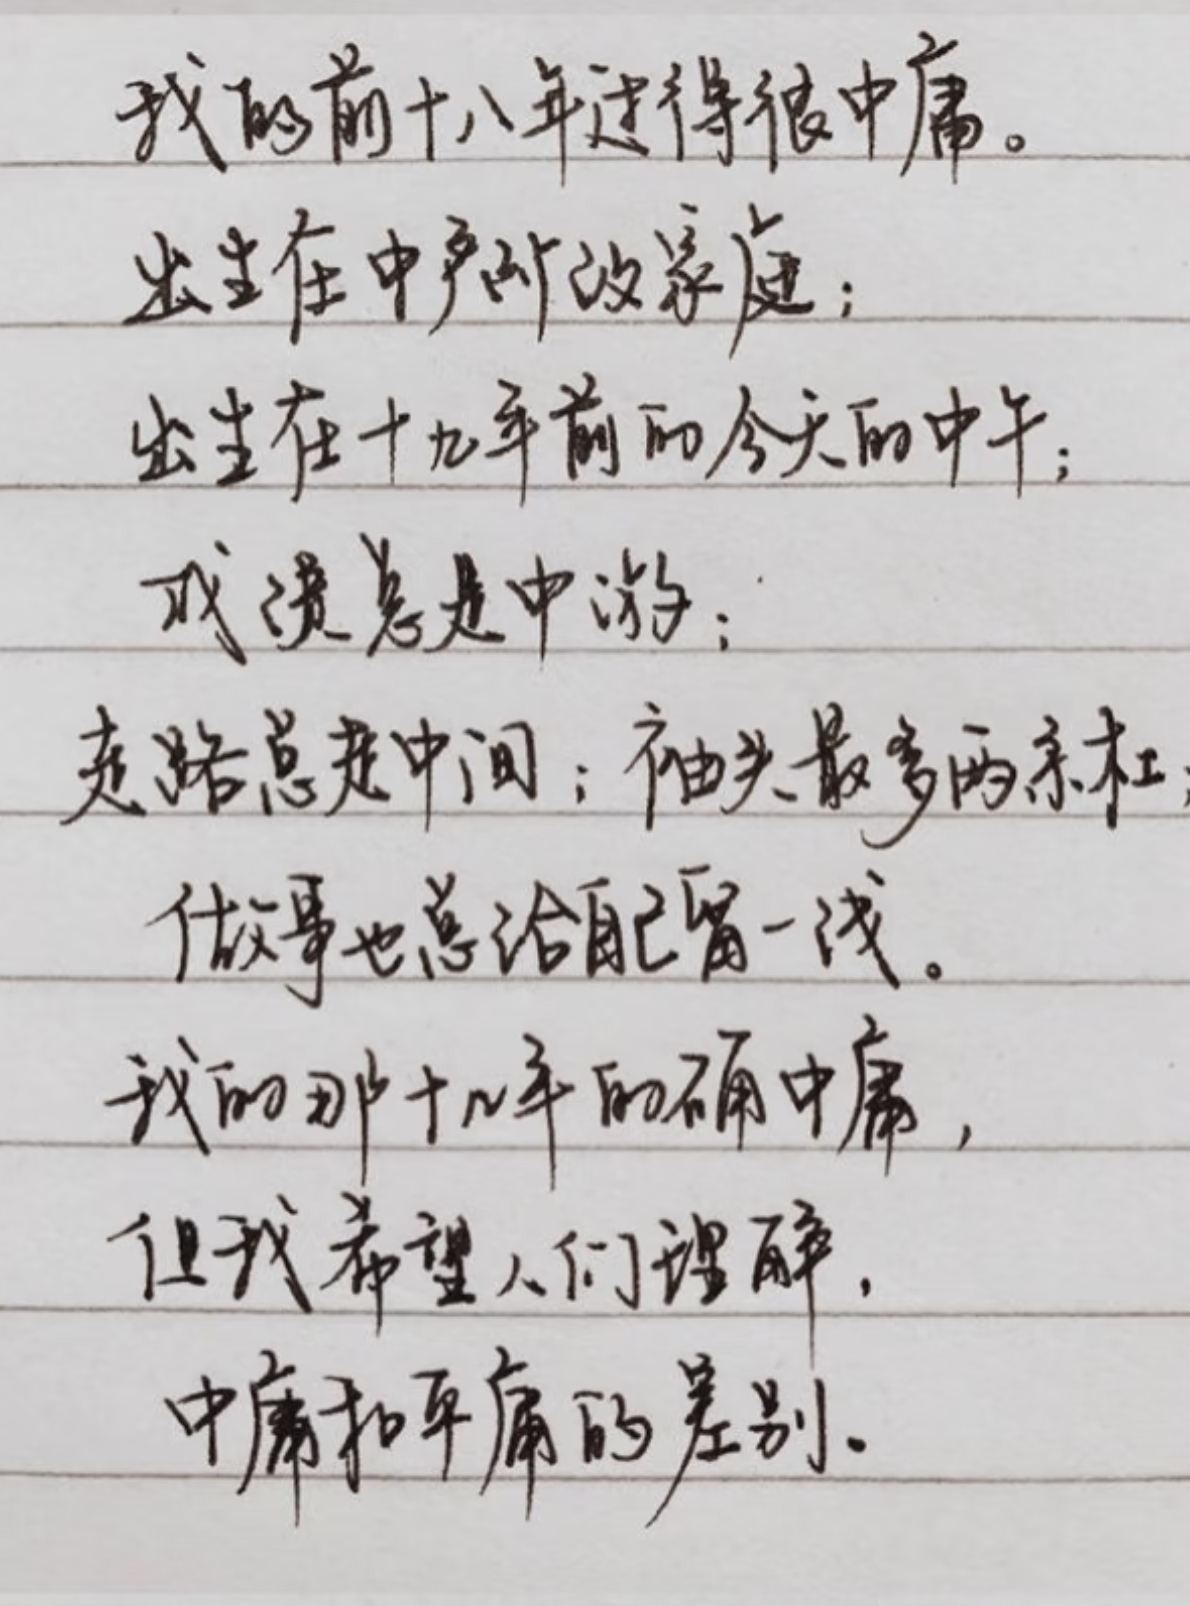 我的前十八年过得很中庸。
出生在中产阶级家庭；
出生在十九年前的今天的中午；
成绩总是中游；
走路总走中间；袖头最多两条杠；
做事也总给自己留一线。
我的那十九年的确中庸，
但我希望人们理解，
中庸和平庸的差别。